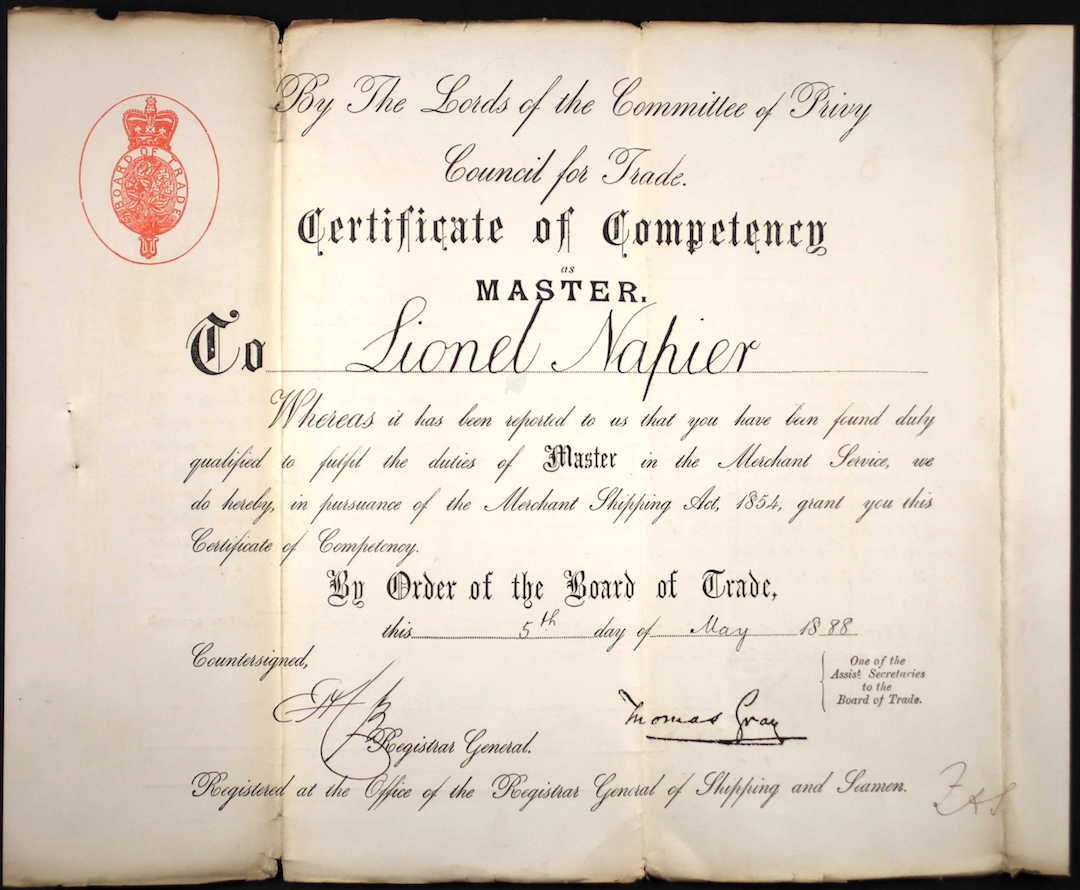 BOARD OF TRADE
By The Lords of the Committee of Privy
Council for Trade.
Certificate of Competency
as
MASTER.
To Lionel Napier
Whereas it has been reported to us that you have been found duly
qualified to fulfil the duties of Master in the Merchant Service, we
do hereby, in pursuance of the Merchant Shipping Act, 1854, grant you this
Certificate of Competency.
By Order of the Board of Trade,
this 5th day of May 1888
Countersigned,
One of the
Assist. Secretaries
to the
Board of Trade.
Thomas Gray
Registrar General.
Registered at the Office of the Registrar General of Shipping and Seamen.